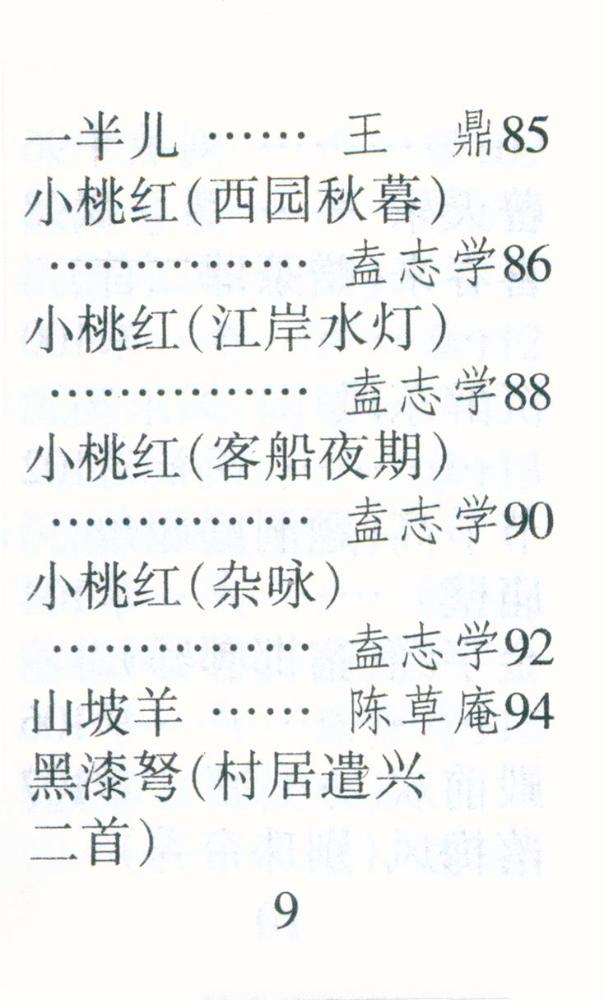 一半儿 …… 王　鼎85
小桃红(西园秋暮)
……………… 盍志学86
小桃红(江岸水灯)
……………… 盍志学88
小桃红(客船夜期)
……………… 盍志学90
小桃红(杂咏)
……………… 盍志学92
山坡羊 …… 陈草庵94
黑漆弩(村居遣兴
二首)
9